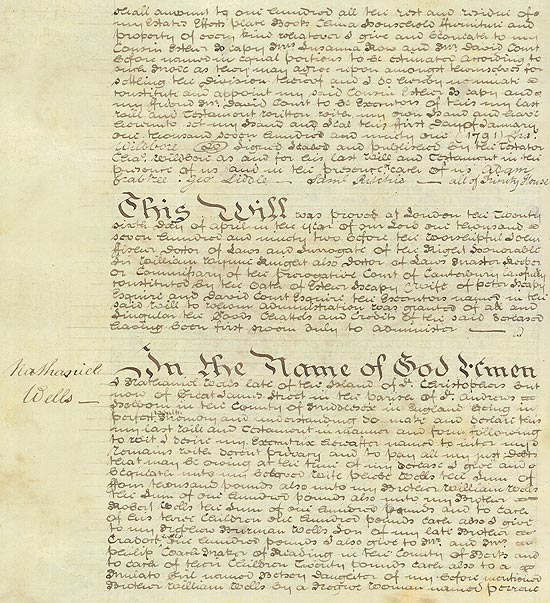 shall amount to one hundred all the rest and residue of
my Estate Effects plate Books China Household ffurniture and
property of every kind whatever I give and Bequeath to my
Cousin Esther Scapy Mrs. Susanna Row and Mr. David Court
before named in equal portions to be Estimated according to
such mode as they may agree upon amongst themselves for
settling the Division thereof and I do hereby nominate
constitute and appoint my said Cousin Esther Scapy and
my ffriend Mr. David Court to be Executors of this my last
Will and Testament written with my own Hand and have
hereunto set my Hand and Seal this first day of January
one thousand seven hundred and ninety one (1791) Chas.
Wildbore Signed Sealed and published by the Testator
Chas. Wildbore as and for his last Will and Testament in the
presence of us and in the presence each of us Adam
Crabtree Geo Liddle Saml. Ritchie all of Trinity House
This Will was proved at London the Twenty
sixth day of April in the year of our Lord one thousand
seven hundred and ninety two before the Worshipful John
ffisher Doctor of Laws and Surrogate of the Right Honourable
Sir William Wynne Knight also Doctor of Laws Master Keeper
or Commissary of the Prerogative Court of Canterbury lawfully
constituted by the Oath of Esther Scapy (Wife of Peter Scapy
Esquire and David Court Esquire the Executors named in the
said Will to whom administration was granted of all and
singular the Goods Chattels and Credits of the said deceased
having been first sworn duly to administer
Nathaniel
Wells
In the Name of God Amen
I Nathaniel Wells late of the Island of St. Christophers but
now of Great James Street in the parish of St. Andrews
Holborn in the County of Middlesex in England being in
perfect Health Memory and understanding do make and declare this
my last Will and Testament in manner and form following
to wit I desire my Executrix hereafter named to inter my
Remains with decent privacy and to pay all my just debts
that may be owing at the time of my decease I give and
Bequeath unto my beloved Wife Phebe Wells the Sum of
ffour thousand pounds also unto my Brother William Wells
the Sum of one hundred pounds also unto my Brother
Robert Wells the Sum of one hundred pounds and to each
of his three Children one hundred pounds each also I give
to my Nephew Son of my late Brother
one hundred pounds I also give to Mr. and Mrs.
Philip Coach Maker of Reading in the County of Berks and
to each of their Children Twenty pounds each also to a
Mulatto Girl named Betsey Daughter of my before mentioned
Brother William Wells by a Negroe Woman named